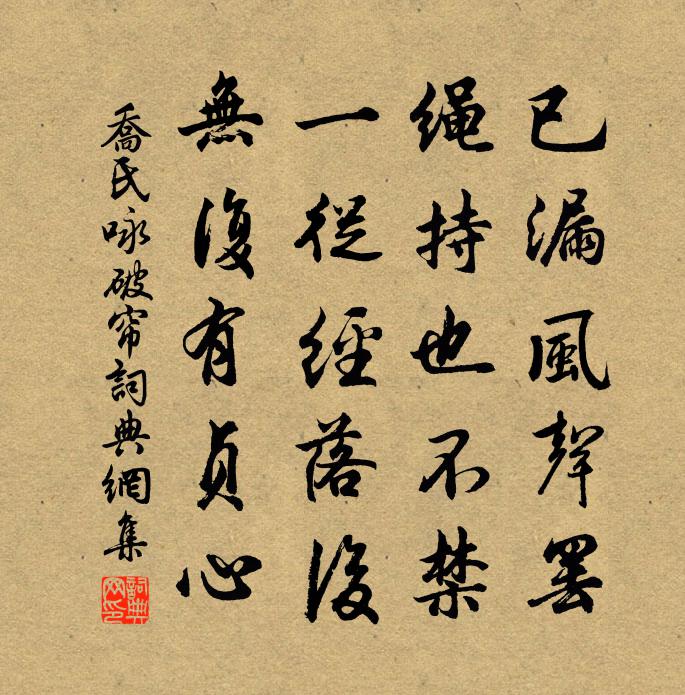 已漏風聲罢
绳持也不禁
一從經落後
無復有貞心
喬氏咏破帘詞典網集
詞典网印